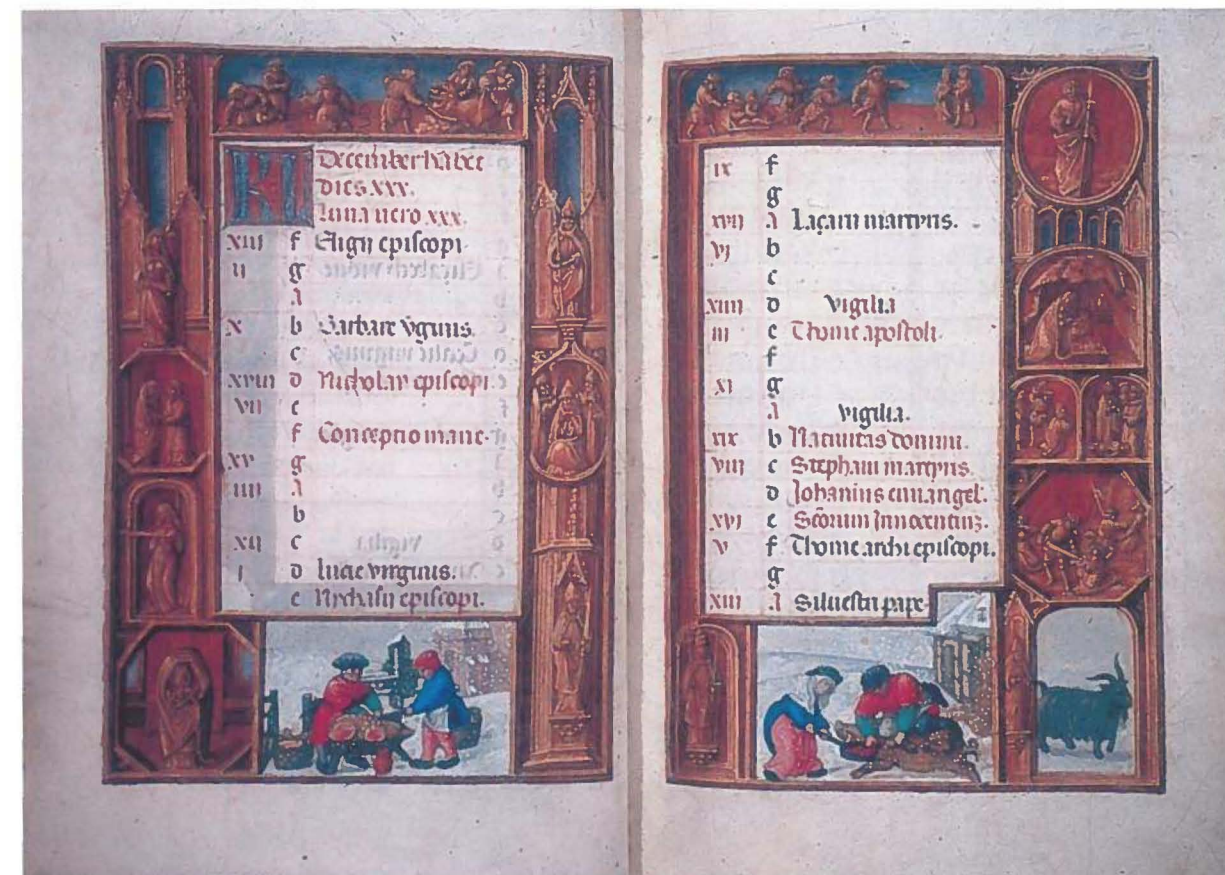 KL December habet
dies xxx.
Luna vero xxx.
xiii f Eligii episcopi.
ii g
A
x b Barbare virginis.
c
xviii d Nicholay episcopi.
vii e
f Conceptio marie.
xv g
iiii A
b
xii c
i d lucie virginis.
e Nychasii episcopi.
ix f
g
xvii A Laçarii martyris.
vj b
c
xiiii d vigilia
iii e Thome apostoli.
f
xi g
A vigilia.
xix b Nativitas domini.
viii c Stephani martyris.
d Johannis euangel.
xvj e Innocentium.
v f Thome archi episcopi.
g
xiii A Siluestri pape.